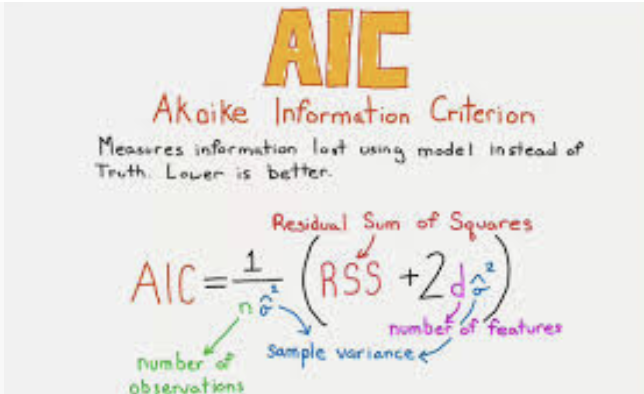 AIC
Akaike Information Criterion
Measures information lost using model instead of
Truth. Lower is better.
Residual Sum of Squares
AIC = 1/(n σ̂²) (RSS + 2 d σ̂²)
number of features
sample variance
number of
observations